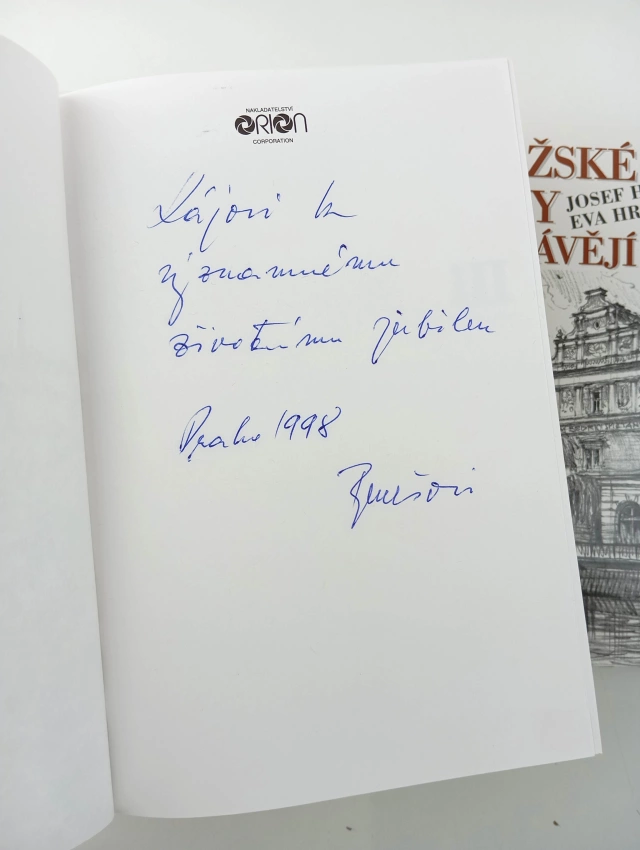 NAKLADATELSTVÍ
ORION
CORPORATION
Kájovi k
významnému
životnímu jubileu
Praha 1998
Benešovi
ŽSKÉ
Y
JOSEF H
EVA HR
ÁVĚJÍ